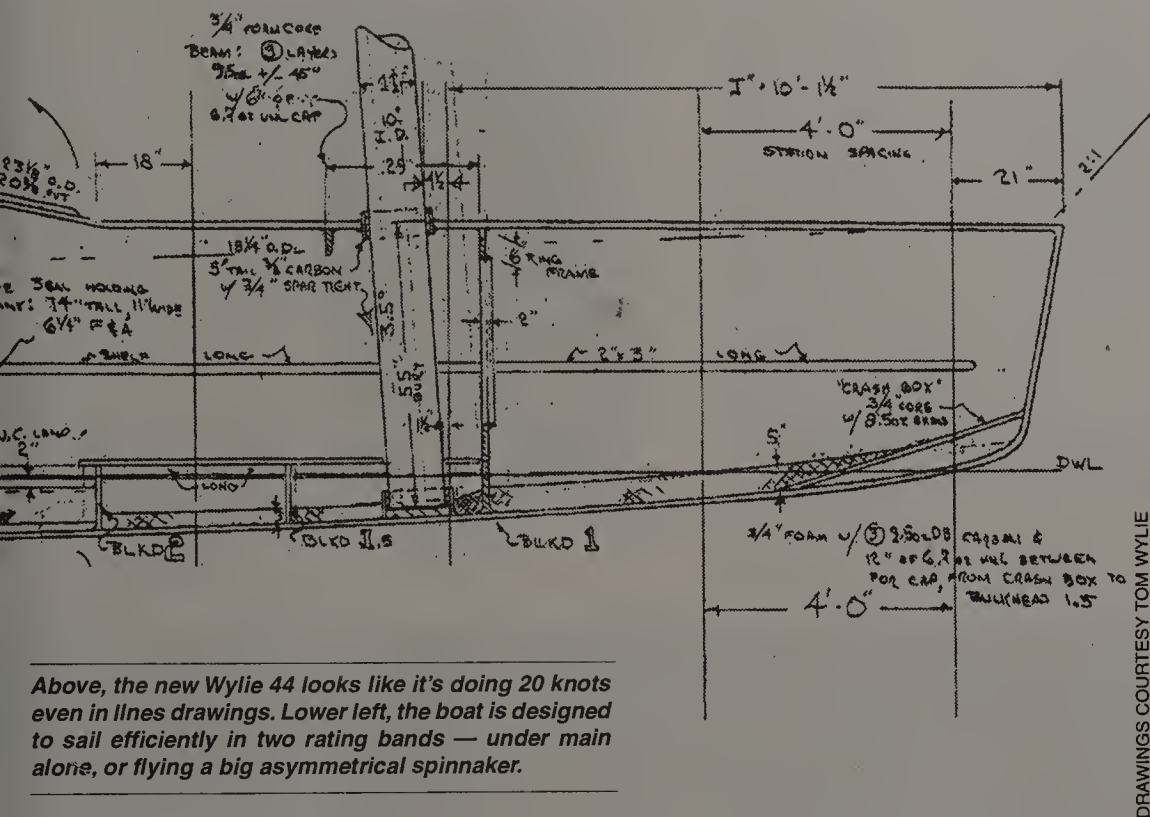 3/4" FOAM CORE
BEAM: ③ LAYERS
+/- 45"
w/ 6"
CAP
J" · 10'-1½"
4'-0"
STATION SPACING
21"
2:1
18"
I.D.
23⅛"
O.D.
18¼" O.D.
5' TALL ⅜" CARBON
w/ 3/4" SPAR
3.5°
55"
BURY
6" RING
FRAME
2"
SEAL HOLDING
74" TALL, 11" WIDE
6¼" F & A
SHELF LONG
2" x 3" LONG
"CRASH BOX"
3/4" CORE
w/ 8.5oz
5"
DWL
2"
LONG
BLKD 2
BLKD 1.5
BLKD 1
3/4" FOAM w/ ③ CARBON &
12" OF BETWEEN
FOR CAP, FROM CRASH BOX TO
BULKHEAD 1.5
4'-0"
Above, the new Wylie 44 looks like it's doing 20 knots
even in lines drawings. Lower left, the boat is designed
to sail efficiently in two rating bands — under main
alone, or flying a big asymmetrical spinnaker.
DRAWINGS COURTESY TOM WYLIE